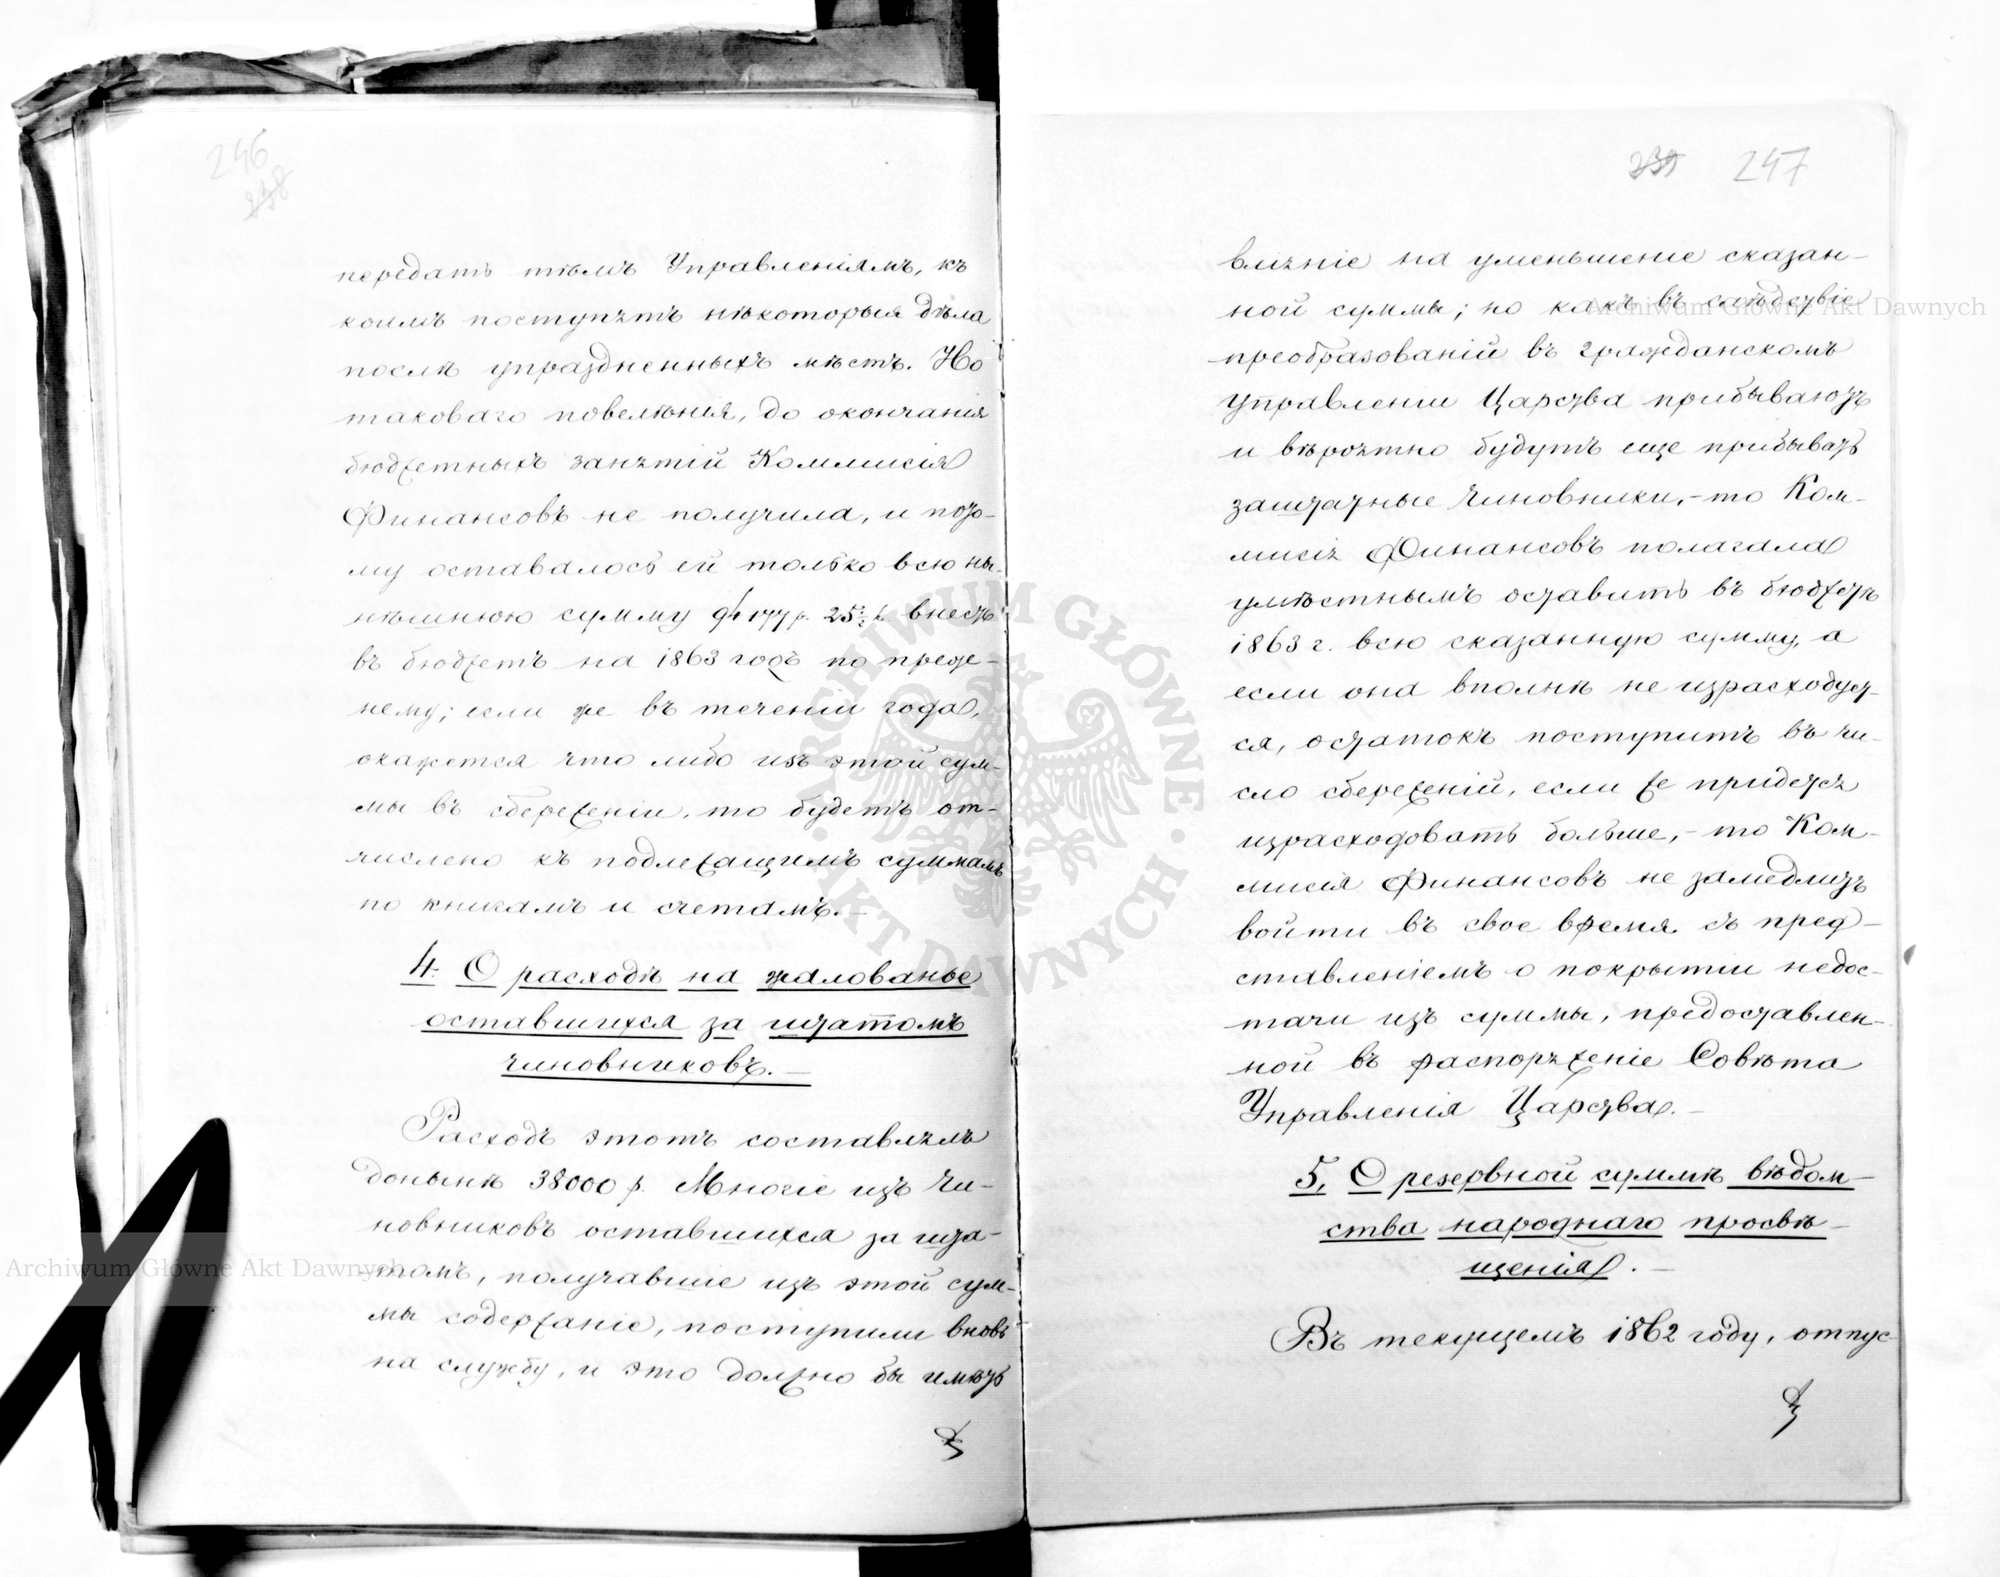 246
238
передать тѣмъ Управленіямъ, къ
коимъ поступятъ нѣкоторыя дѣла
послѣ упраздненныхъ мѣстъ. Но
таковаго повелѣнія, до окончанія
бюджетныхъ занятій Коммисія
Финансовъ не получила, и пото-
му оставалось ей только всю ны-
нѣшнюю сумму р. 25½ к. внесть
въ бюджетъ на 1863 годъ по преж-
нему; если же въ теченіи года,
окажется что либо изъ этой сум-
мы въ сбереженіи, то будетъ от-
числено къ подлежащимъ суммамъ
по книгамъ и счетамъ.—
4. О расходѣ на жалованье
оставшихся за штатомъ
чиновниковъ.—
Расходъ этотъ составлялъ
донынѣ 38000 р. Многіе изъ чи-
новниковъ оставшихся за шта-
томъ, получавшіе изъ этой сум-
мы содержаніе, поступили вновь
на службу, и это должно бы имѣть
239 247
вліяніе на уменьшеніе сказан-
ной суммы; но какъ въ слѣдствіе
преобразованій въ гражданскомъ
управленіи Царства прибываютъ
и вѣроятно будутъ еще прибывать
заштатные чиновники,— то Ком-
мисія Финансовъ полагала
умѣстнымъ оставить въ бюджетѣ
1863 г. всю сказанную сумму, а
если она вполнѣ не израсходует-
ся, остатокъ поступитъ въ чи-
сло сбереженій, если же придется
израсходовать больше,— то Ком-
мисія Финансовъ не замедлитъ
войти въ свое время съ пред-
ставленіемъ о покрытіи недос-
тачи изъ суммы, предоставлен-
ной въ распоряженіе Совѣта
Управленія Царства.—
5. О резервной суммѣ вѣдом-
ства народнаго просвѣ-
щенія.—
Въ текущемъ 1862 году, отпус
Archiwum Główne Akt Dawnych
Archiwum Główne Akt Dawnych
ARCHIWUM GŁÓWNE
AKT DAWNYCH